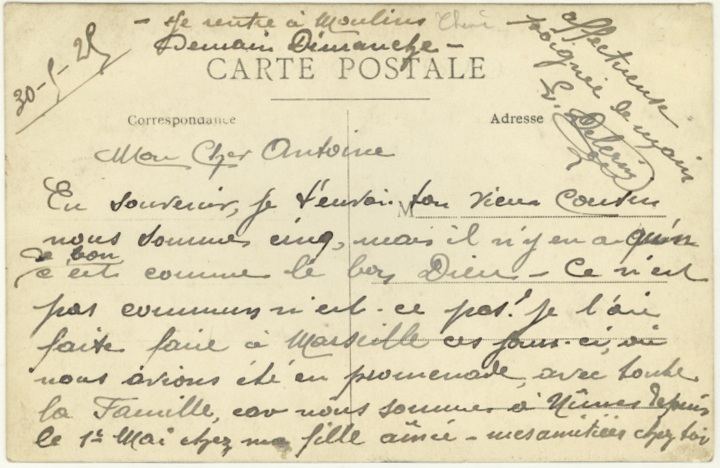 - Je rentre à Moulins
Demain Dimanche -
30-5-25
CARTE POSTALE
Correspondance
Adresse
affectueuse
poignée de main
Mon Cher Antoine
En souvenir, je t'envoie ton vieux Cousin
M
nous sommes cinq, mais il n'y en a qu'un
de bon
c'est comme le bon Dieu - Ce n'est
pas commun n'est-ce pas! je l'ai
faite faire à Marseille ces jours-ci, où
nous avions été en promenade, avec toute
la Famille, car nous sommes à Nîmes depuis
le 1er Mai chez ma fille aînée - mes amitiés chez toi